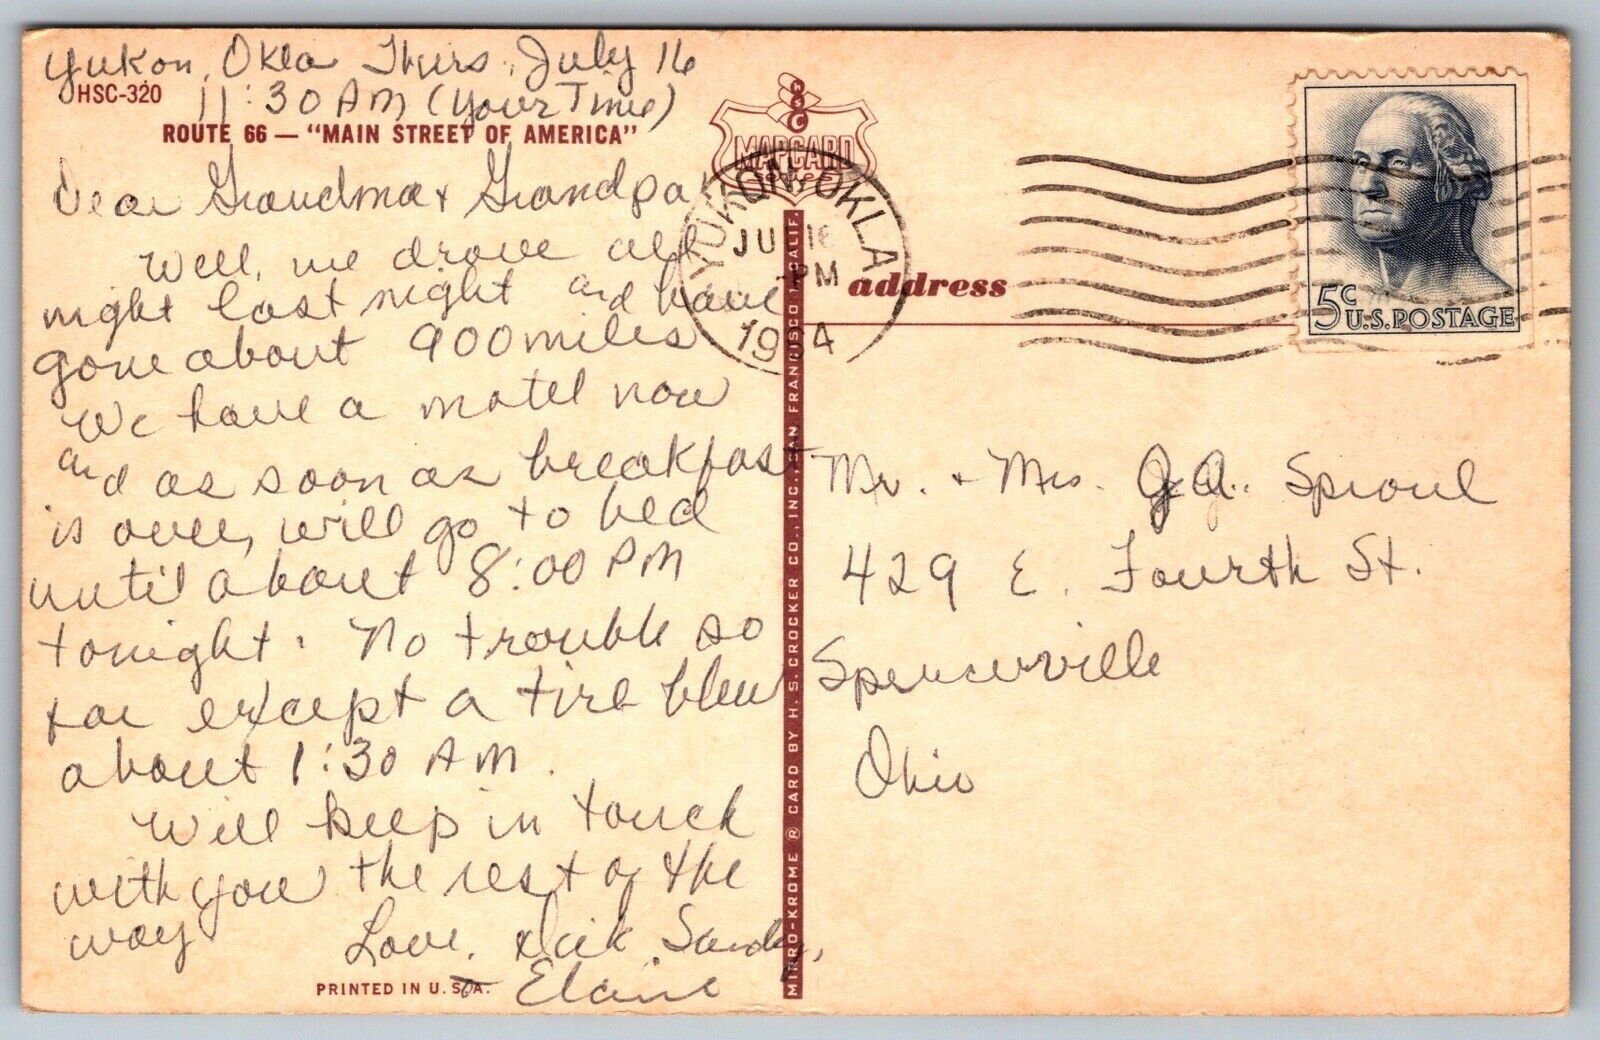 Yukon, Okla Thurs, July 16
HSC-320
11:30 AM (your Time)
ROUTE 66 — "MAIN STREET OF AMERICA"
Dear Grandma & Grandpa
Well, we drove all
night last night and have
gone about 900 miles
We have a motel now
and as soon as breakfast
is over, will go to bed
until about 8:00 PM
tonight. No trouble so
far except a tire blew
about 1:30 AM.
Will keep in touch
with you the rest of the
way
Love, Dick, Sandy,
& Elaine
PRINTED IN U.S.A.
MAPCARD
YUKON, OKLA
JUL 16
PM
1964
address
5c
U.S. POSTAGE
MIRRO-KROME ® CARD BY H. S. CROCKER CO., INC. SAN FRANCISCO 1, CALIF.
Mr. & Mrs. J. A. Sproul
429 E. Fourth St.
Spencerville
Ohio